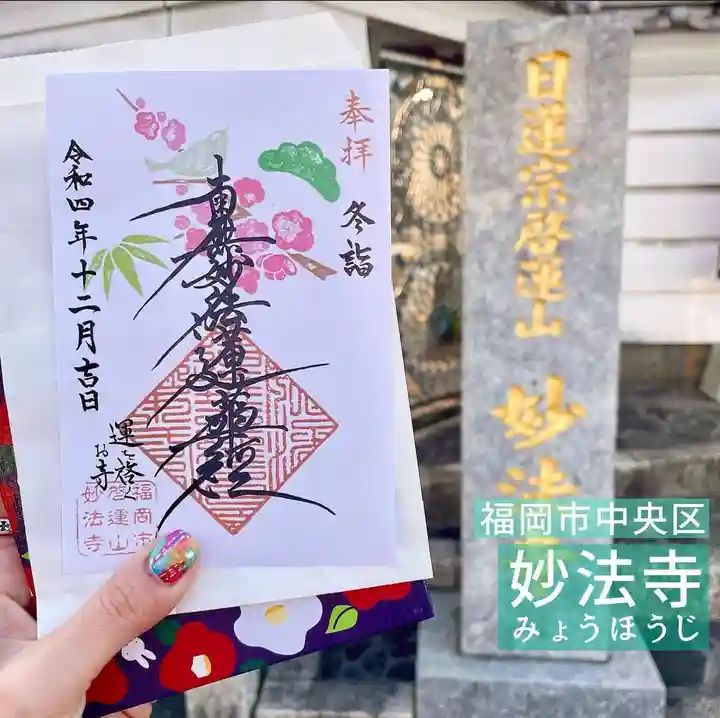 奉拝
冬詣
南無妙法蓮華経
令和四年十二月吉日
運を啓く
お寺
福岡市
啓運山
妙法寺
日蓮宗啓運山 妙法寺
福岡市中央区
妙法寺
みょうほうじ